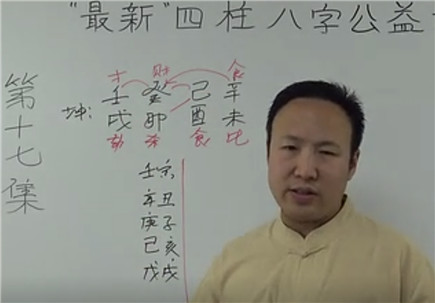 "最新"四柱八字公益
第十七集
才 财 食
坤: 壬 癸 己 辛
戌 卯 酉 未
劫 杀 食 比
壬寅
辛丑
庚子
己亥
戊戌